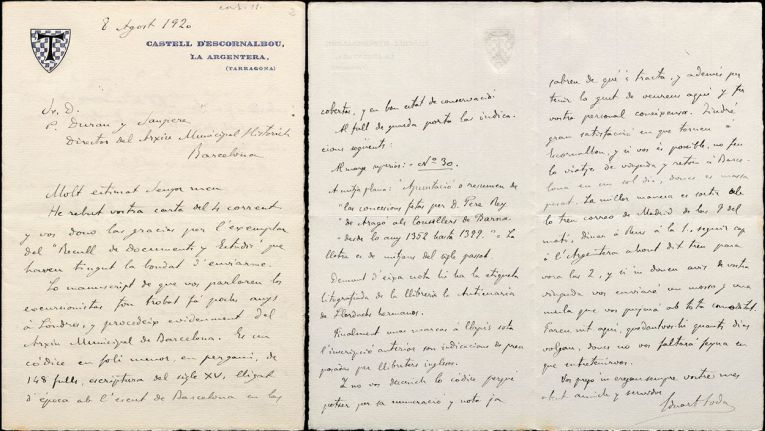 T
8 Agost 1920
CASTELL D'ESCORNALBOU,
LA ARGENTERA,
(TARRAGONA)
Sr. D.
P. Duran y Sanpere
Director del Arxiu Municipal Historich
Barcelona
Molt estimat Senyor meu
He rebut vostra carta del 4 corrent
y vos dono las gracias per l'exemplar
del "Recull de documents y Estudis" que
haveu tingut la bondat d'enviarme.
Lo manuscrit de que vos parlaren los
excursionistas fou trobat fa pochs anys
á Londres, y procedeix evidenment del
Arxiu Municipal de Barcelona. Es un
códice en foli menor, en pergamí, de
148 fulls, escriptura del sigle XV, lligat
d'época ab l'escut de Barcelona en las
cobertas, y en bon estat de conservació
Al full de guarda porta las indica-
cions següents:
Al marge superior: - Nº 30.
A mitja plana: "Apuntació o resumen de
"las concesions fetas per D. Pere Rey
"de Aragó als Consellers de Barna
"desde lo any 1352 hasta 1399." - La
lletra es de mitjans del sigle passat.
Demunt d'eixa nota hi ha la etiqueta
litografiada de la llibreria La Anticuaria
de Llordachs hermanos.
Finalment unas marcas á llapis sota
l'inscripció anterior son indicacions de preu
posadas per llibreters inglesos.
Y no vos descrich lo códice perqué
potser per sa numeració y nota ja
sabreu de qué 's tracta, y ademés per
tenir lo gust de veureus aquí y fer
vostra personal coneixensa. Tindré
gran satisfacció en que torneu á
Escornalbou y si vos es posible, no feu
lo viatje de vinguda y retorn á Barce-
lona en un sol dia, doncs es massa
pesat. La millor manera es sortir ab
lo tren correo de Madrid de las 9 del
matí, dinar á Reus á la 1, seguir cap
á l'Argentera ahont dit tren para
vora las 2, y si 'm doneu avis de vostra
vinguda vos enviaré un mosso y una
mula que vos pujará ab tota comoditat.
Fareu nit aquí, quedantvoshi quants dias
vulgau, doncs no vos faltará feyna en
que entretenirvos.
Vos prego me cregau sempre vostre mes
atent amich y servidor
Eduart Toda